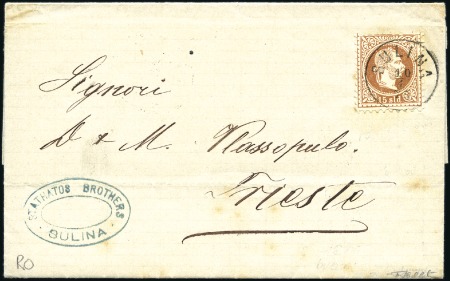 SULINA
10
15 sld
Signori
D & M. Vlassopulo.
Trieste
STATHATOS BROTHERS
· SULINA ·
RO